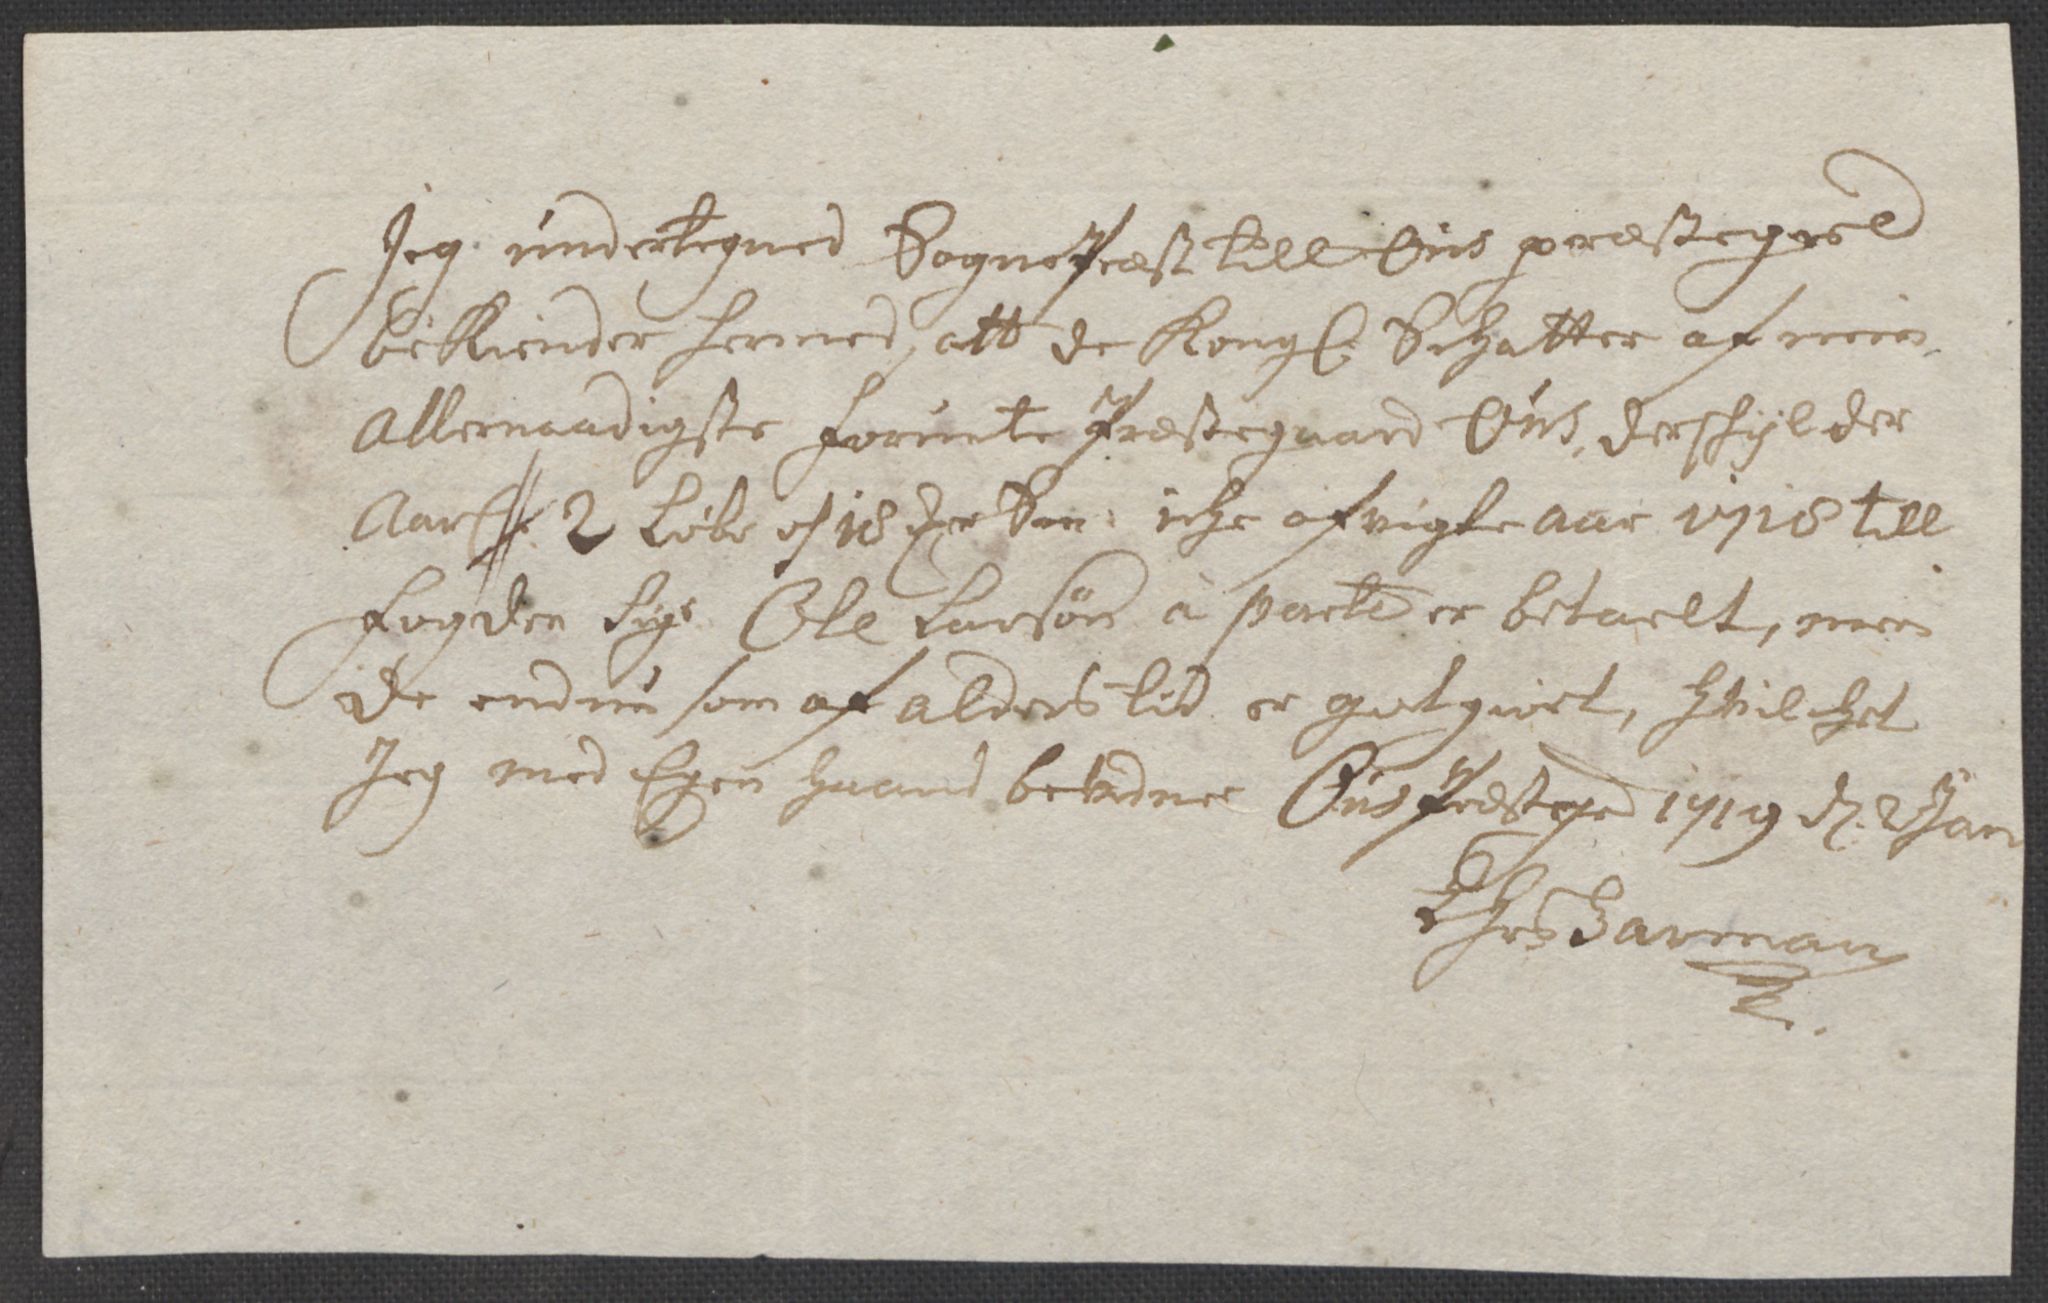 Jeg undertegned Sognepræst till Ous præstegield
bekiender hermed, att de Kongl: Schatter af min
allernaadigste forunte Præstegaard Ous, derschylder
Aarl: 2 Løbe 18 iche afvigte aar 1718 till
fogden Sigr Ole Larsøn à parte er betaelt, men
de endnu som af alders tid er godtgiort, hvilchet
Jeg med Egen haand bekiedner Ous Præstegd 1719 d. 2 Jan
Chrs Garman